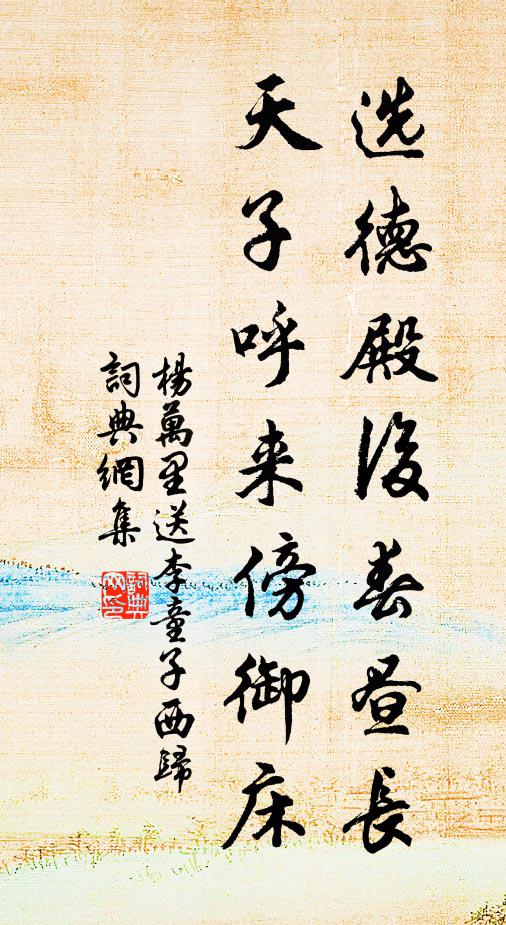 选德殿後春昼長
天子呼来傍御床
楊萬里送李童子西歸
詞典網集